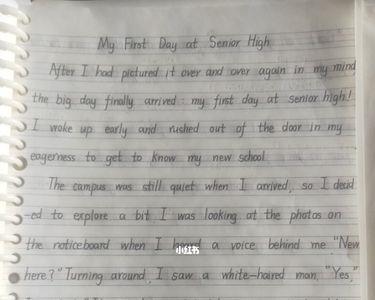 My First Day at Senior High
After I had pictured it over and over again in my mind
the big day finally arrived: my first day at senior high!
I woke up early and rushed out of the door in my
eagerness to get to know my new school.
The campus was still quiet when I arrived, so I decid
-ed to explore a bit. I was looking at the photos on
the noticeboard when I heard a voice behind me. "New
小红书
here?" Turning around, I saw a white-haired man. "Yes,"